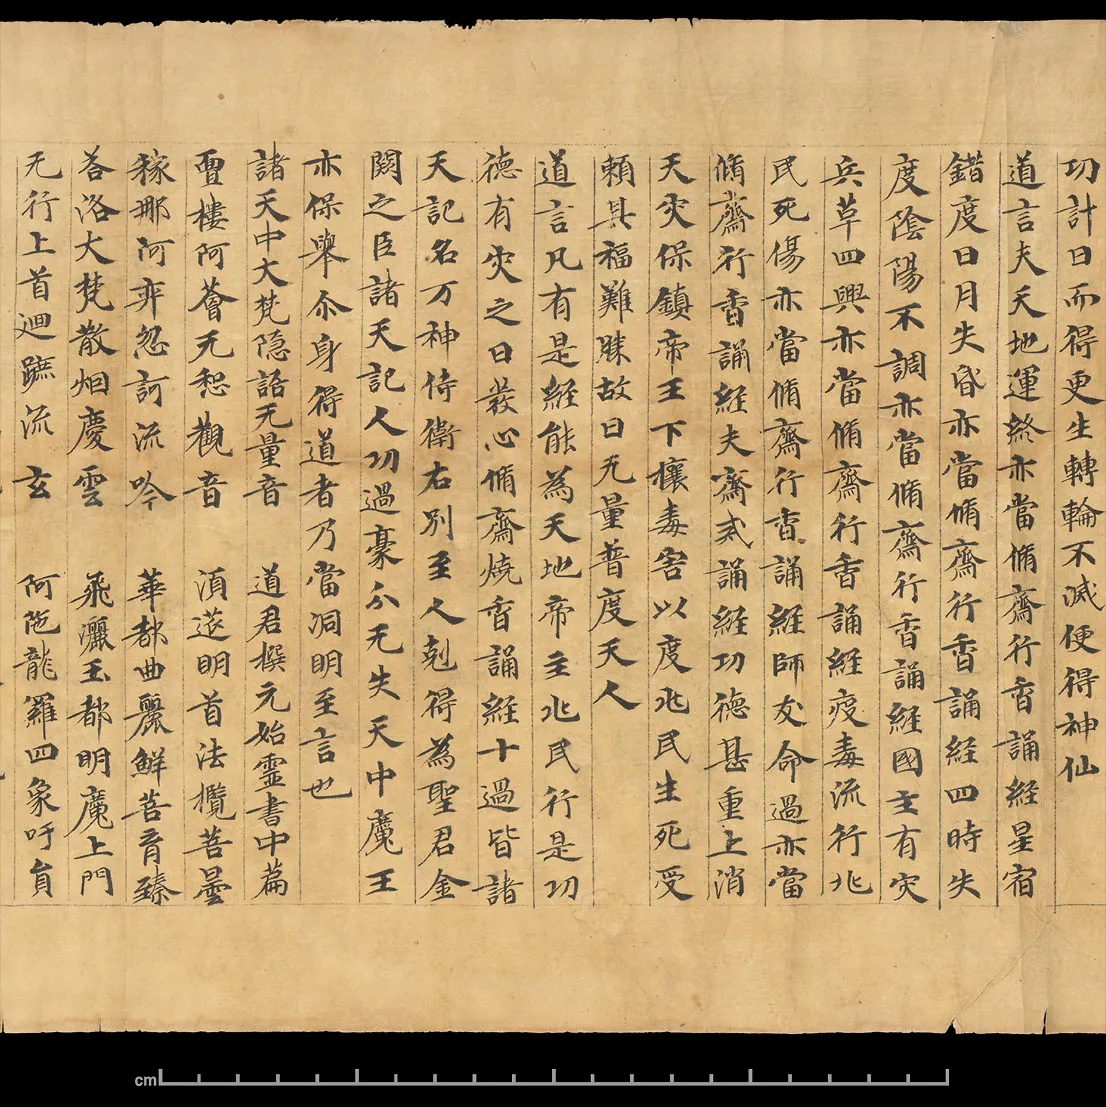 功計日而得更生轉輪不滅便得神仙
道言夫天地運終亦當脩齋行香誦經星宿
錯度日月失昏亦當脩齋行香誦經四時失
度陰陽不調亦當脩齋行香誦經國主有灾
兵革四興亦當脩齋行香誦經疫毒流行兆
民死傷亦當脩齋行香誦經師友命過亦當
脩齋行香誦經夫齋戒誦經功德甚重上消
天灾保鎮帝王下攘毒害以度兆民生死受
頼其福難勝故曰无量普度天人
道言凡有是經能為天地帝主兆民行是功
德有灾之日發心脩齋燒香誦經十過皆諸
天記名万神侍衛右別至人剋得為聖君金
闕之臣諸天記人功過豪分无失天中魔王
亦保舉尒身得道者乃當洞明至言也
諸天中大梵隱語无量音 道君撰元始靈書中篇
亶樓阿薈无恝觀音 湏莚明首法欖菩曇
稼那阿弈忽訶流吟 華都曲麗鮮菩育臻
荅洛大梵散烟慶雲 飛灑玉都明魔上門
无行上首迴蹠流玄 阿陁龍羅四象吁員